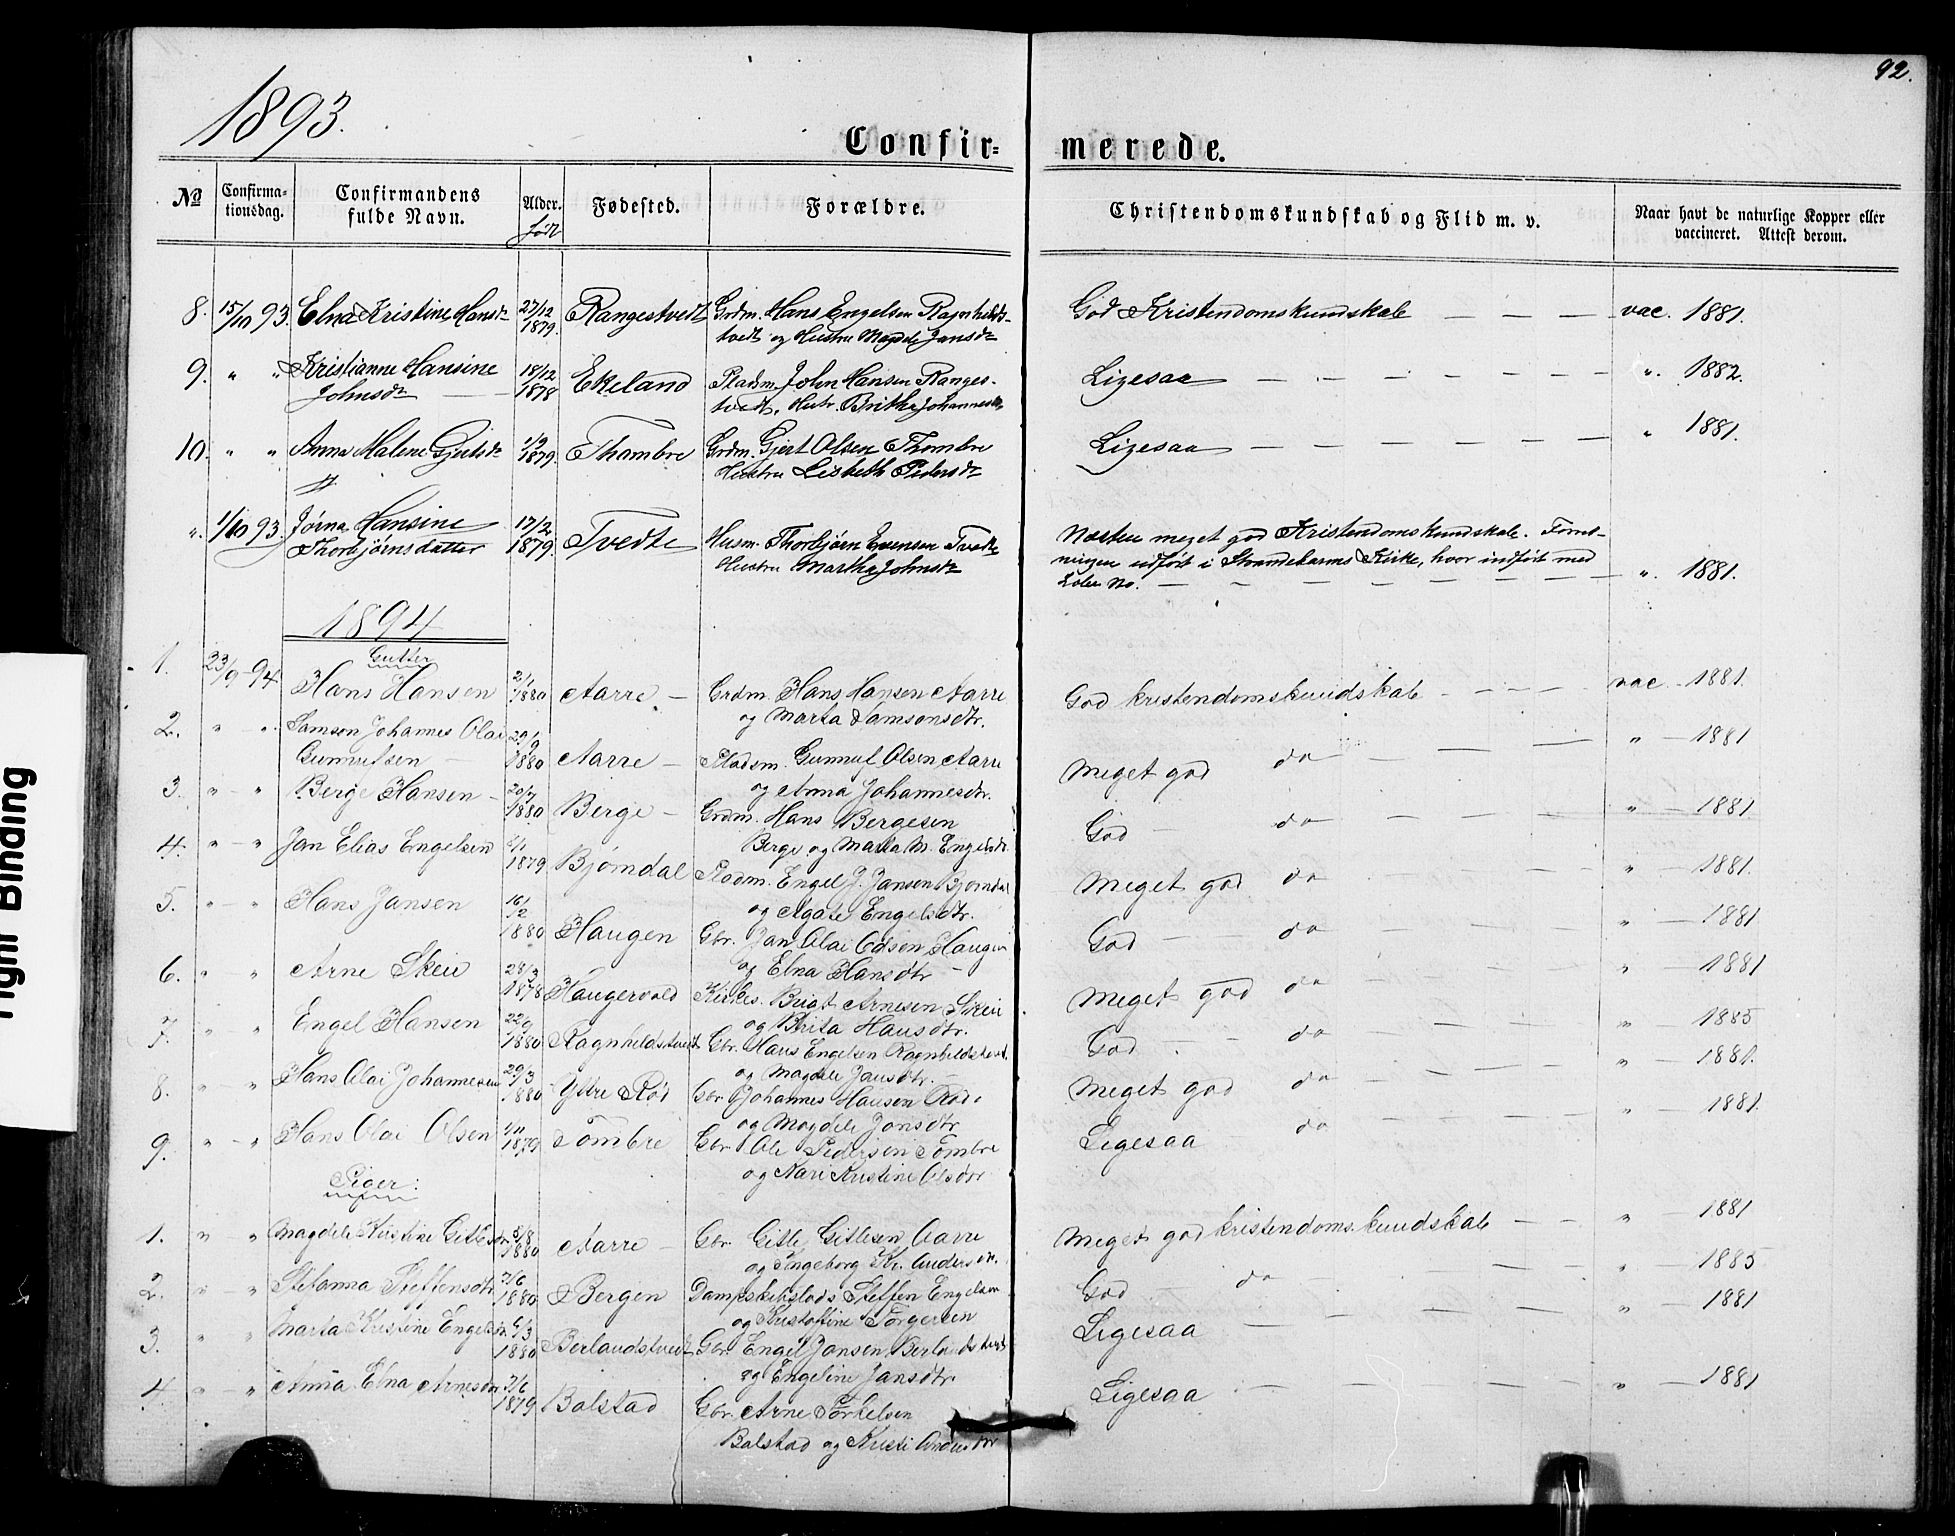 92.
1893.
Confir= merede.
No Confirmationsdag. Confirmandens fulde Navn. Alder. født Fødested. Forældre. Christendomskundskab og Flid m. v. Naar havt de naturlige Kopper eller vaccineret. Attest derom.
8. 15/10 93. Elna Kristine Hansdr 27/12 1879. Rangestvedt Grdm. Hans Engelsen Ragnhilds- God Kristendomskundskab — — — vac. 1881.
tvedt og Hustru Magdele Jansdr
9. " " Kristianne Hansine 18/12 1878 Ekeland Pladsm. John Hansen Ranges- Ligesaa — — — — — — " 1882.
Johnsdr — tvedt, Hustr. Britha Johannesdr
10. " " Anna Malene Gjertsdr 1/9 1879. Thambre Grdm. Gjert Olsen Thombre Ligesaa — — — — — — " 1881.
Hustru Lisbeth Pedersdr
". 1/10 93. Jørna Hansine 17/2 1879. Tvedte Husm. Thorbjørn Evensen Tvedte Næsten meget god Kristendomskundskab. Forret-
Thorbjørnsdatter Hustru Martha Johnsdr ningen udført i Strandebarms Kirke, hvor indført med
Løbe No. — — — — — — — " 1881.
1894
Gutter
1. 23/9-94 Hans Hansen 2/1 1880 Aarre — Grdm. Hans Hansen Aarre God kristendomskundskab — — — vac. — 1881.
og Marta Samsonsdtr.
2. " — " Samson Johannes Olai 29/9 1880 Aarre — Pladsm. Gunnuf Olsen Aarre Meget god do — — — " — 1881
Gunnufsen — og Anna Johannesdtr.
3. " — " Berge Hansen — 20/7 1880 Berge — Grdm. Hans Bergesen God — do — — — " — 1881
Berge og Marta M. Engelsdr
4. " — " Jan Elias Engelsen 1/1 1879 Bjørndal Pladm. Engel J. Jansen Bjørndal Meget god do — — — " — 1881.
og Agate Engelsdtr.
5. " — " Hans Jansen 16/12 1880 Haugen Gbr. Jan Olai Odsen Haugen God — do — — — " — 1881
og Elna Hansdtr —
6. " " Arne Skeie 28/3 1878 Haugervold Kirkes. Brigt Arnesen Skeie Meget god do — — — " — 1881
og Brita Hansdtr.
7. " " Engel Hansen 22/9 1880 Ragnhildstvedt Gbr. Hans Engelsen Ragnhildstvedt God — do — — — " — 1885
og Magdele Jansdtr. —
8. " " Hans Olai Johannesen 29/3 1880 Yttre Rød Gbr Johannes Hansen Rød Meget god do — — — " — 1881.
og Magdele Jonsdtr
9. " — " Hans Olai Olsen 1/11 1879 Tombre Gbr. Ole Pedersen Tombre Ligesaa do — — — " — 1881.
og Kari Kristine Olsdtr
Piger:
1. " — " Magdele Kristine Gitlesdr 5/8 1880 Aarre — Gbr. Gitle Gitlesen Aarre Meget god kristendomskundskab — — " — 1881
og Ingeborg Kr. Andersdr.
2. " — " Stefanna Steffensdtr 7/6 1880 Bergen Dampskibslods Steffen Engelsen God — do — — — " — 1885
og Kristofine Torgersen
3. " " Marta Kristine Engelsdr 6/3 1880 Berlandstvedt Gbr. Engel Jansen Berlandstvedt Ligesaa — — — " — 1881
og Engeline Jansdtr.
4. " — " Anna Elna Arnesdr 7/6 1879 Balstad Gbr. Arne Torkelsen Ligesaa — — — " — 1881
Balstad og Kristi Andersdtr
Right Binding